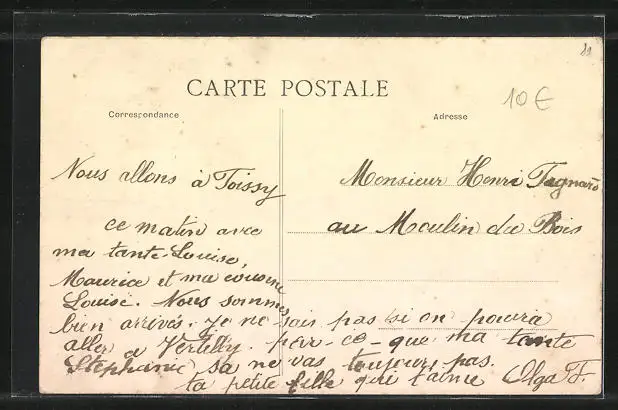 21
CARTE POSTALE
10€
Correspondance
Adresse
Nous allons à Toissy
ce matin avec
ma tante Louise,
Maurice et ma cousine
Louise. Nous sommes
bien arrivés. je ne sais pas si on pourra
aller à Vertilly. par-ce-que ma tante
Stephanie sa ne vas toujours pas.
ta petite fille qui t'aime Olga F.
Monsieur Henri Tagnard
au Moulin du Bois